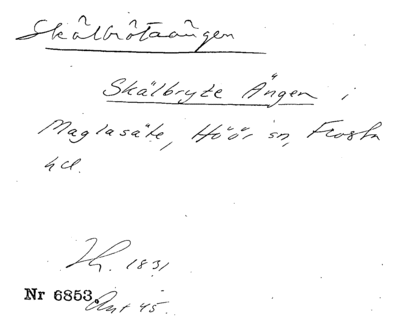 Skälbrötaängen
Skälbryte Ängen i
Maglasäte, Höör sn, Frosta
hd.
1831
Nr 6853. Ant 45.